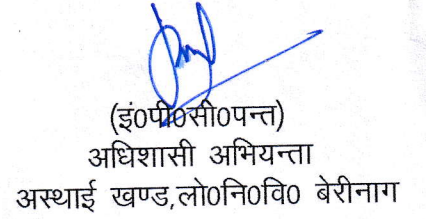 (इं०पी०सी०पन्त)
अधिशासी अभियन्ता
अस्थाई खण्ड,लो०नि०वि० बेरीनाग